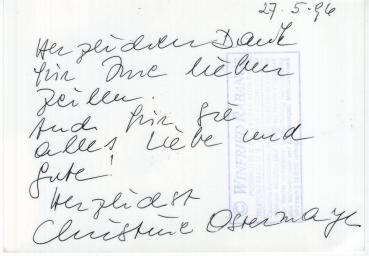 27.5.96
Herzlichen Dank
für Ihre lieben
Zeilen.
Auch für Sie
alles Liebe und
Gute!
Herzlichst
Christine Ostermayer